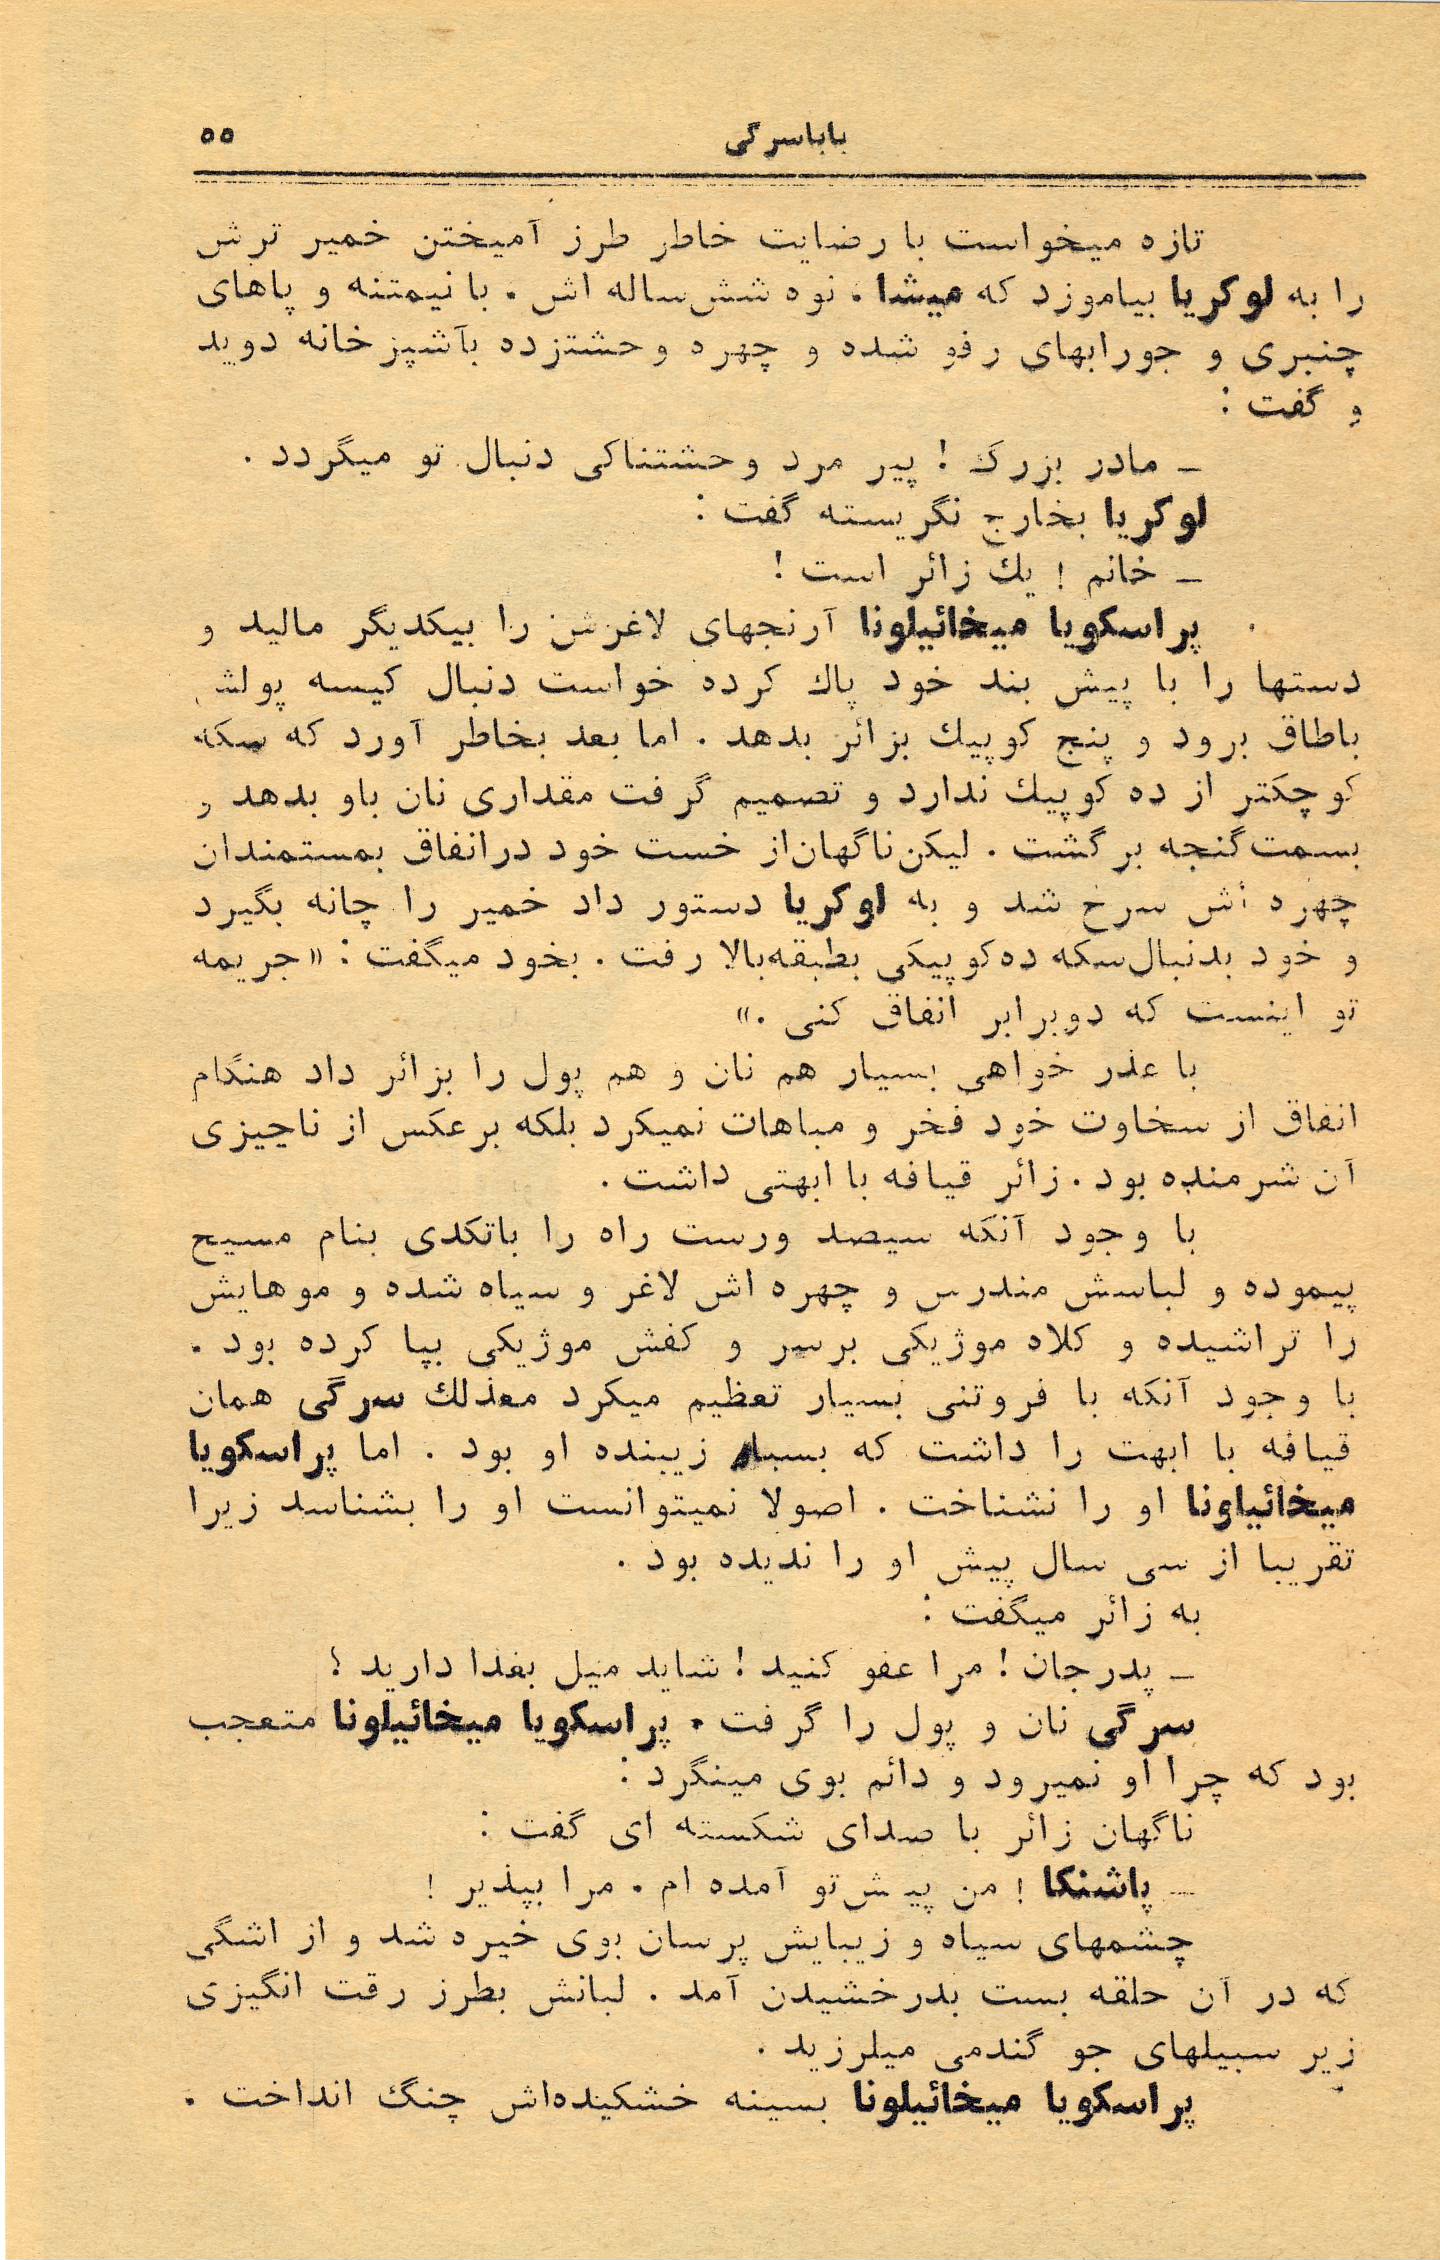 باباسرگی
۵۵
تازه میخواست با رضایت خاطر طرز آمیختن خمیر ترش
را به لوکریا بیاموزد که میشا . نوه شش‌ساله اش . با نیمتنه و پاهای
چنبری و جورابهای رفو شده و چهره وحشتزده بآشپزخانه دوید
و گفت :
ـ مادر بزرگ ! پیر مرد وحشتناکی دنبال تو میگردد .
لوکریا بخارج نگریسته گفت :
ـ خانم ! یك زائر است !
پراسکویا میخائیلونا آرنجهای لاغرش را بیکدیگر مالید و
دستها را با پیش بند خود پاك کرده خواست دنبال کیسه پولش
باطاق برود و پنج کوپیك بزائر بدهد . اما بعد بخاطر آورد که سکه
کوچکتر از ده کوپیك ندارد و تصمیم گرفت مقداری نان باو بدهد و
بسمت گنجه برگشت . لیکن ناگهان از خست خود در انفاق بمستمندان
چهره اش سرخ شد و به لوکریا دستور داد خمیر را چانه بگیرد
و خود بدنبال سکه ده کوپیکی بطبقه بالا رفت . بخود میگفت : «جریمه
تو اینست که دوبرابر انفاق کنی .»
با عذر خواهی بسیار هم نان و هم پول را بزائر داد هنگام
انفاق از سخاوت خود فخر و مباهات نمیکرد بلکه برعکس از ناچیزی
آن شرمنده بود . زائر قیافه با ابهتی داشت .
با وجود آنکه سیصد ورست راه را باتکدی بنام مسیح
پیموده و لباسش مندرس و چهره اش لاغر و سیاه شده و موهایش
را تراشیده و کلاه موژیکی برسر و کفش موژیکی بپا کرده بود .
با وجود آنکه با فروتنی بسیار تعظیم میکرد معذلك سرگی همان
قیافه با ابهت را داشت که بسیار زیبنده او بود . اما پراسکویا
میخائیلونا او را نشناخت . اصولا نمیتوانست او را بشناسد زیرا
تقریبا از سی سال پیش او را ندیده بود .
به زائر میگفت :
ـ پدرجان ! مرا عفو کنید ! شاید میل بغذا دارید ؟
سرگی نان و پول را گرفت . پراسکویا میخائیلونا متعجب
بود که چرا او نمیرود و دائم بوی مینگرد :
ناگهان زائر با صدای شکسته ای گفت :
ـ پاشنکا ! من پیش تو آمده ام . مرا بپذیر !
چشمهای سیاه و زیبایش پرسان بوی خیره شد و از اشگی
که در آن حلقه بست بدرخشیدن آمد . لبانش بطرز رقت انگیزی
زیر سبیلهای جو گندمی میلرزید .
پراسکویا میخائیلونا بسینه خشکیده‌اش چنگ انداخت .